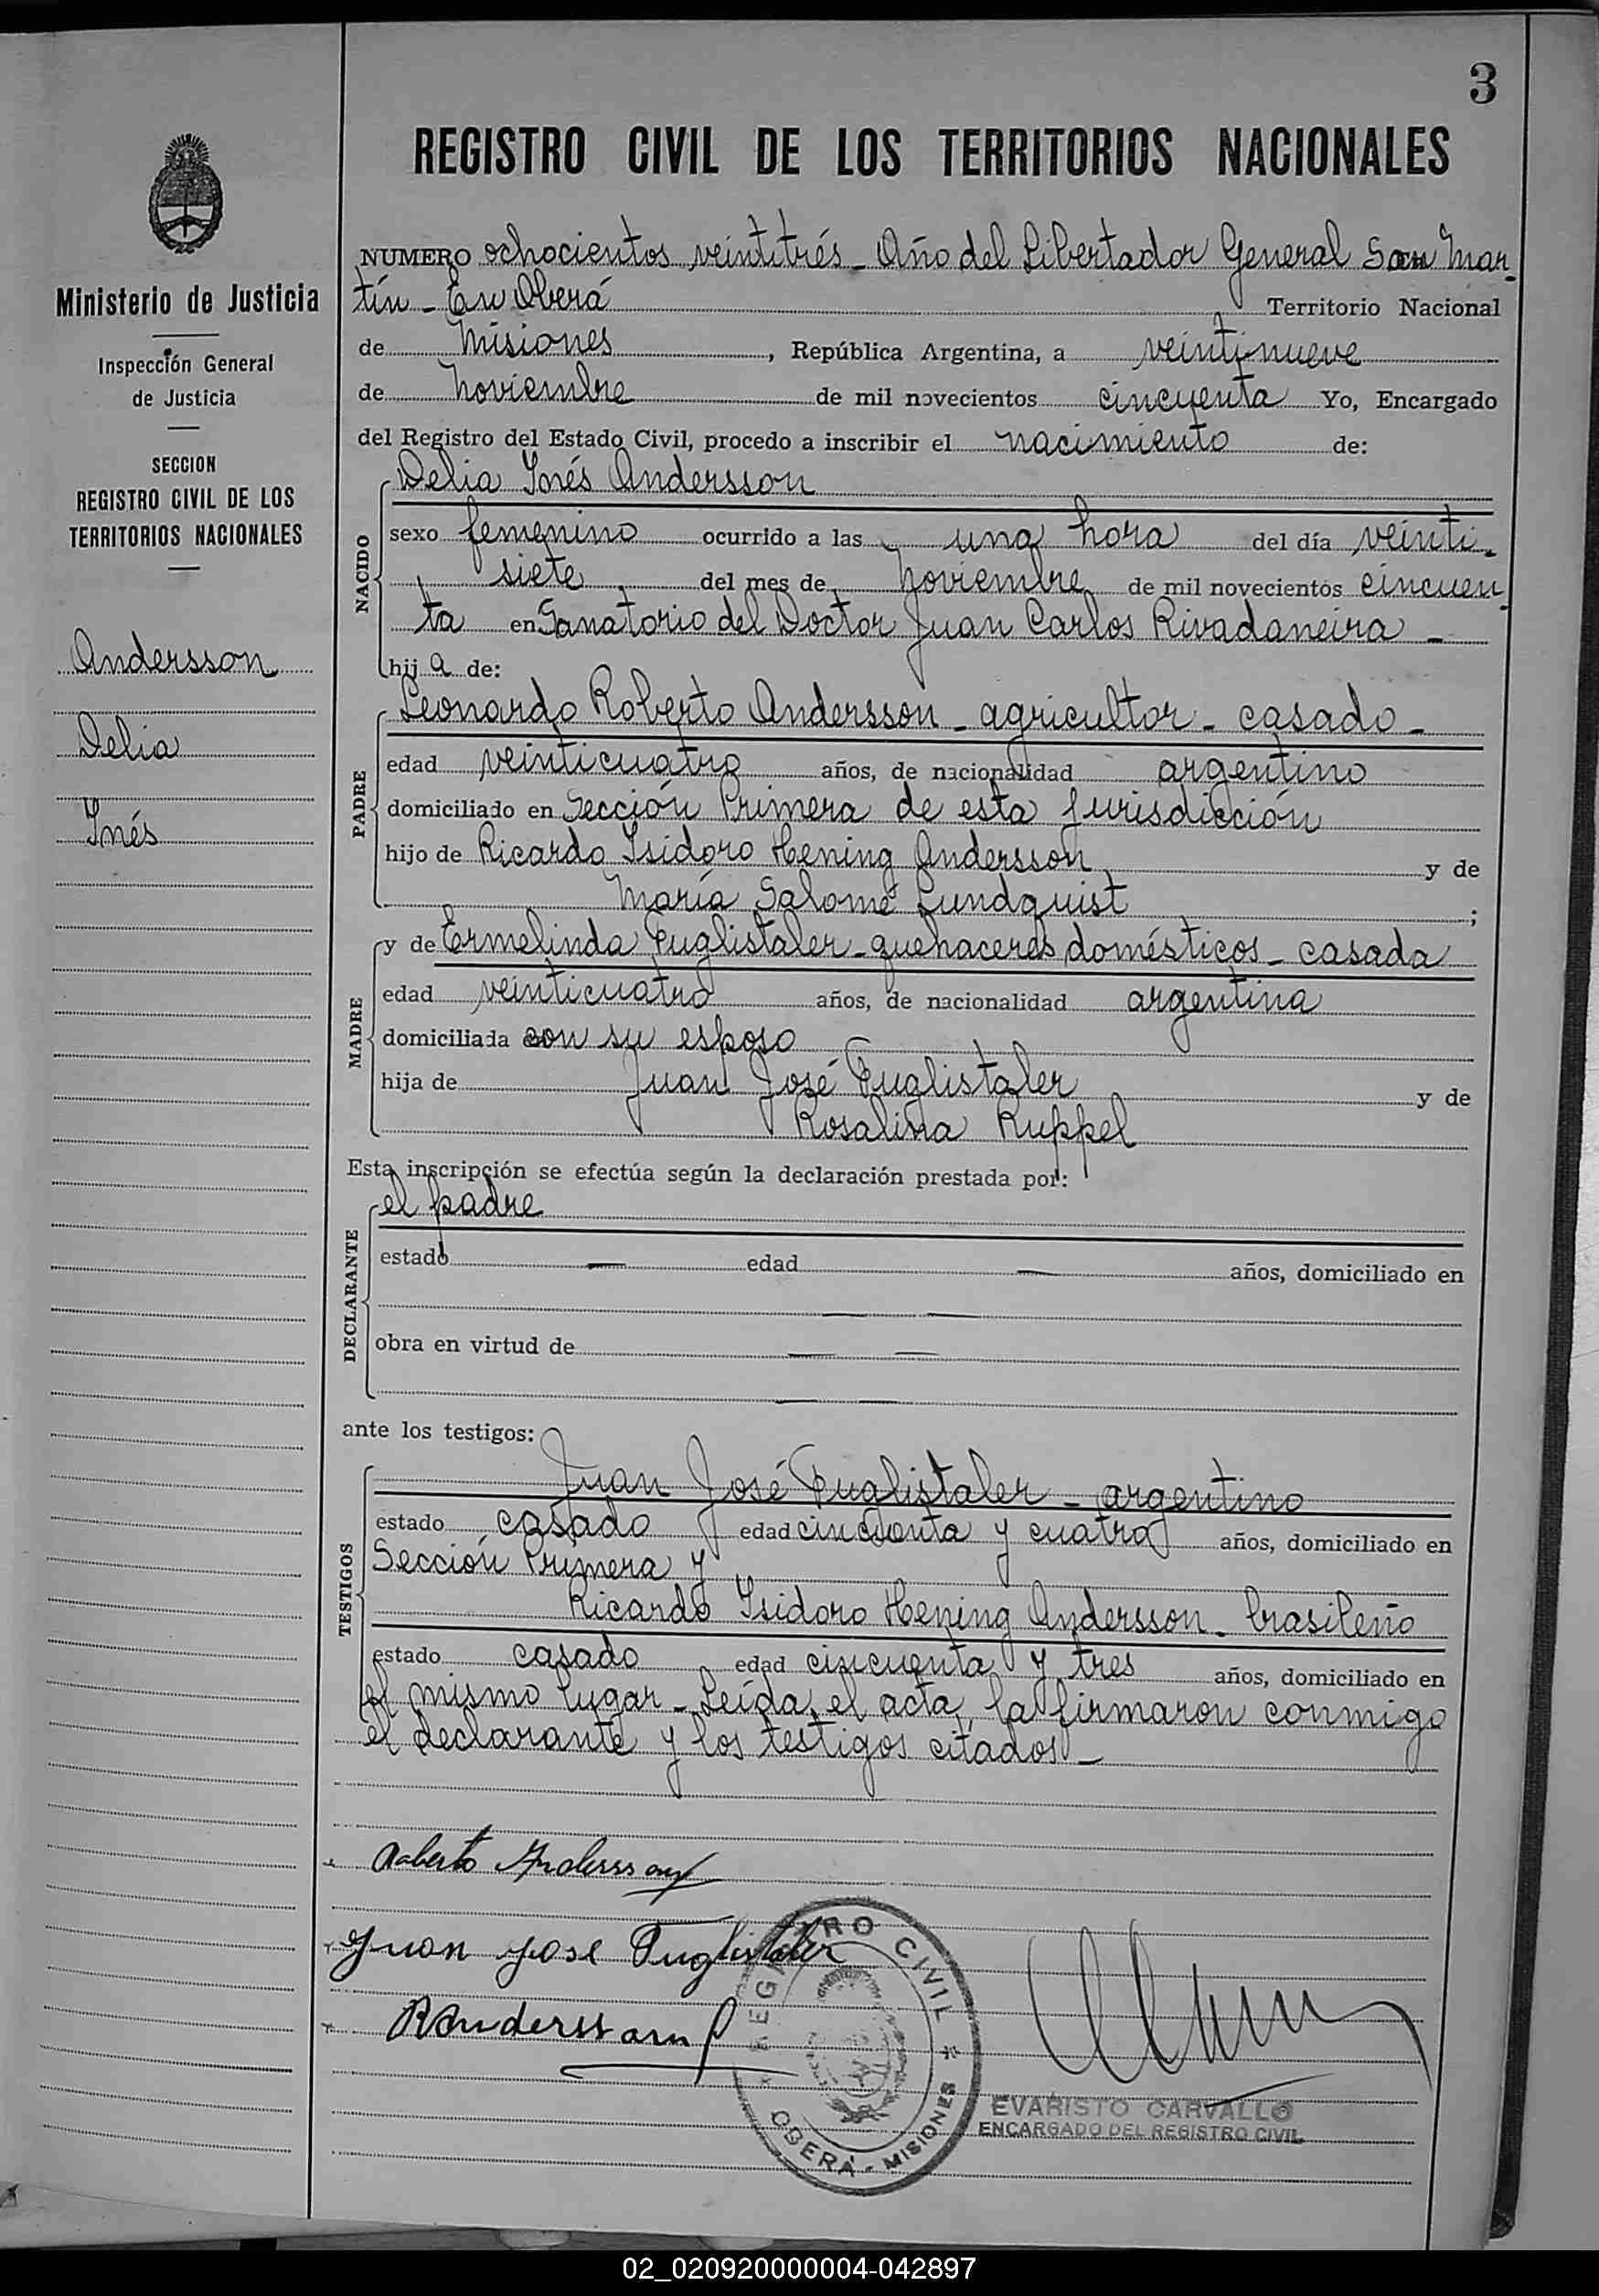 3
REGISTRO CIVIL DE LOS TERRITORIOS NACIONALES
Ministerio de Justicia
Inspección General
de Justicia
SECCION
REGISTRO CIVIL DE LOS
TERRITORIOS NACIONALES
Andersson
Delia
Inés
NUMERO ochocientos veintitrés - Año del Libertador General San Mar-
tín - En Oberá Territorio Nacional
de Misiones, República Argentina, a veintinueve
de Noviembre de mil novecientos cincuenta Yo, Encargado
del Registro del Estado Civil, procedo a inscribir el nacimiento de:
NACIDO
Delia Inés Andersson
sexo femenino ocurrido a las una hora del día veinti-
siete del mes de Noviembre de mil novecientos cincuen-
ta en Sanatorio del Doctor Juan Carlos Rivadaneira -
hij a de:
PADRE
Leonardo Roberto Andersson - agricultor - casado -
edad veinticuatro años, de nacionalidad argentino
domiciliado en Sección Primera de esta jurisdicción
hijo de Ricardo Isidoro Hening Andersson y de
María Salomé Lundquist ;
MADRE
y de Ermelinda Puglistaler - quehaceres domésticos - casada
edad veinticuatro años, de nacionalidad argentina
domiciliada con su esposo
hija de Juan José Puglistaler y de
Rosalina Ruppel
Esta inscripción se efectúa según la declaración prestada por:
DECLARANTE
el padre
estado — edad — años, domiciliado en
— —
obra en virtud de — —
— —
ante los testigos:
TESTIGOS
Juan José Puglistaler - argentino
estado casado edad cincuenta y cuatro años, domiciliado en
Sección Primera y
Ricardo Isidoro Hening Andersson - brasileño
estado casado edad cincuenta y tres años, domiciliado en
el mismo lugar - Leída el acta, la firmaron conmigo
el declarante y los testigos citados -
Roberto Andersson
Juan Jose Puglistaler
RAndersson
REGISTRO CIVIL
OBERÁ - MISIONES
EVARISTO CARVALLO
ENCARGADO DEL REGISTRO CIVIL
02_020920000004-042897